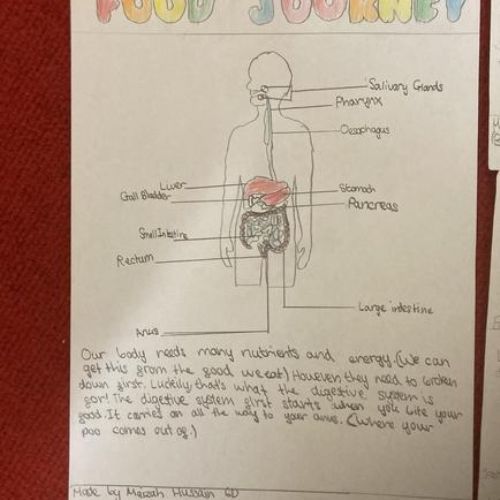 FOOD JOURNEY
Salivary Glands
Pharynx
Oesophagus
Liver
Gall Bladder
Stomach
Pancreas
Small Intestine
Rectum
Large intestine
Anus
Our body needs many nutrients and energy. (We can
get this from the food we eat) However, they need to broken
down first. Luckily, that's what the digestive system is
for! The digestive system first starts when you bite your
food. It carries on all the way to your anus. (Where your
poo comes out of.)
Made by Hussain 6D